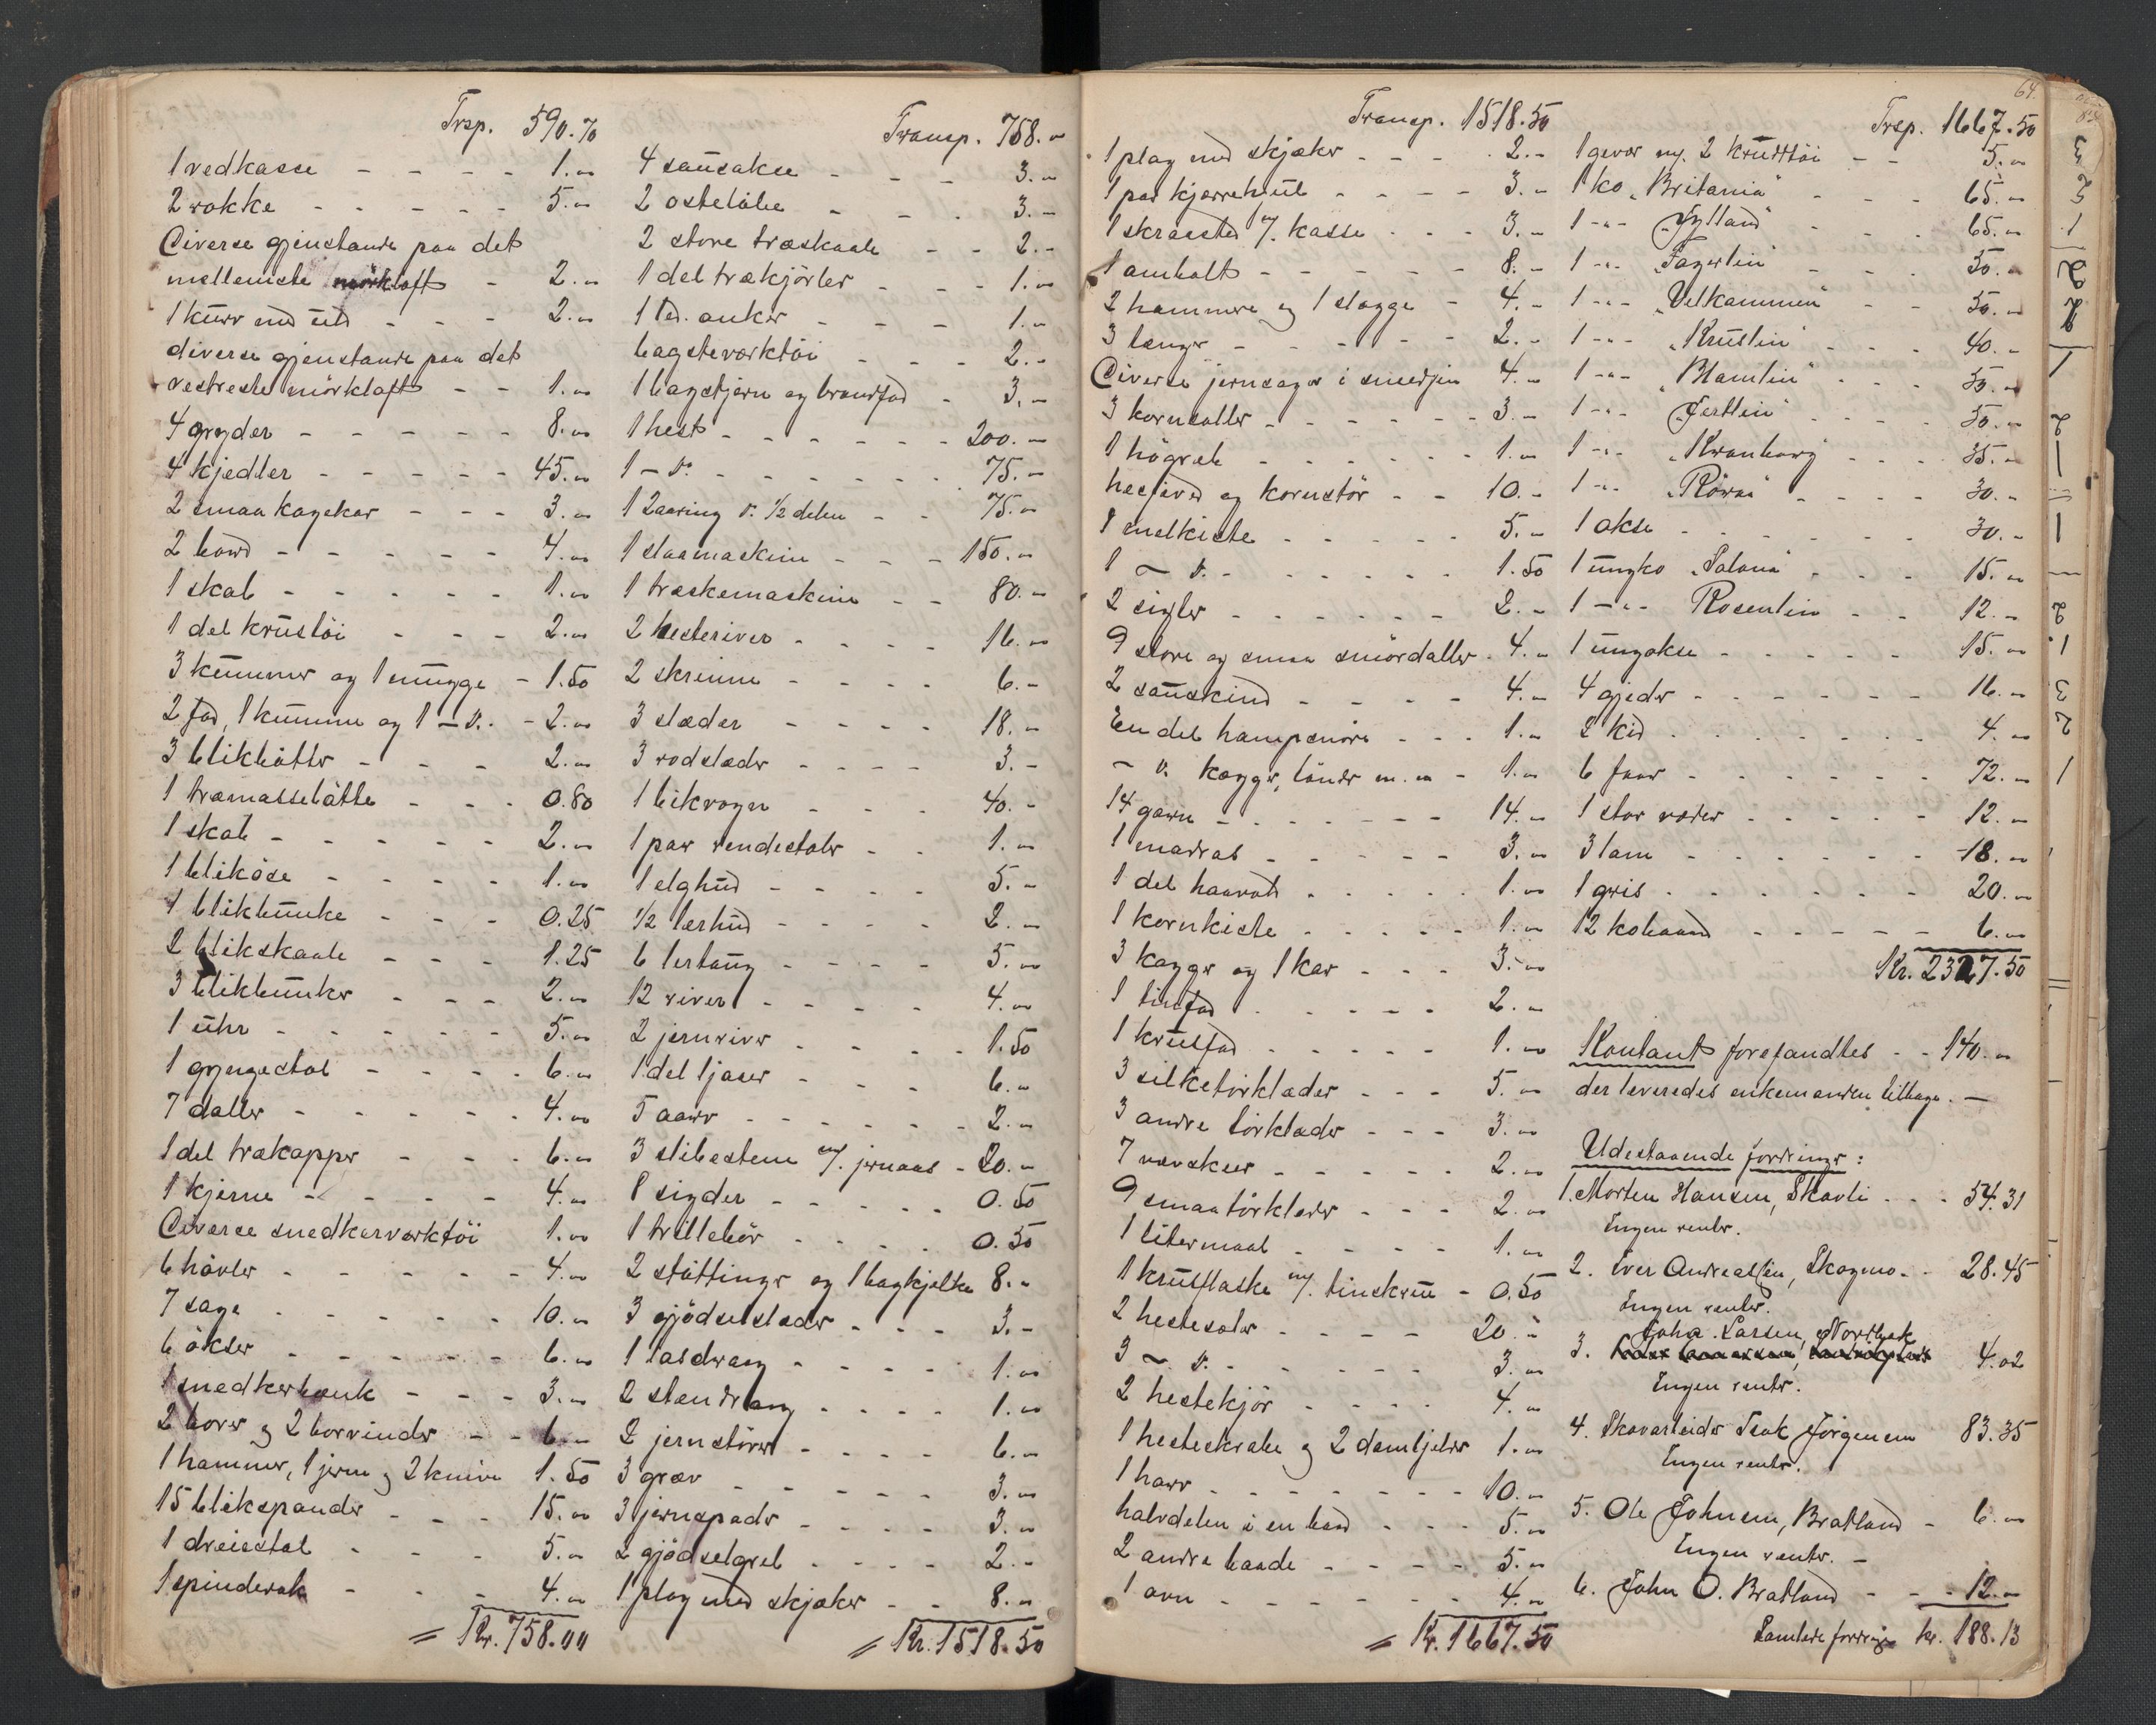 Trsp. 590.70
1 vedkasse - - - - 1.00
2 rokke - - - - - 5.00
Diverse gjenstande paa det
mellemste mörkloft - 2.00
1 kurv med uld - - - 2.00
diverse gjenstande paa det
vestreste mörkloft - - 1.00
4 gryder - - - - - 8.00
4 kjedler - - - - - 45.00
2 smaa kagekar - - - 3.00
2 bord - - - - - 4.00
1 skab - - - - - 1.00
1 del krustöi - - - 2.00
3 kummer og 1 mugge - 1.50
2 fad, 1 kumme og 1 - D. - 2.00
3 blikbötter - - - 2.00
1 træmassebötte - - - 0.80
1 skab - - - - - 2.00
1 bliköse - - - - 1.00
1 blikbunke - - - 0.25
2 blikskaale - - - 1.25
3 blikbunker - - - 2.00
1 uhr - - - - - 5.00
1 gyngestol - - - - 6.00
7 daller - - - - - 4.00
1 del trækopper - - - 6.00
1 kjerne - - - - 4.00
Diverse snedkerværktöi 1.00
6 hövler - - - - - 4.00
7 sage - - - - - 10.00
6 økser - - - - - 6.00
1 snedkerbænk - - - 3.00
2 borer og 2 borvinder - - 6.00
1 hammer, 1 jern og 2 knive 1.50
15 blikspander - - - 15.00
1 dreiestol - - - 5.00
1 spinderok - - - 4.00
= Kr. 758.00
Transp. 758.00
4 sausakse - - - 3.00
2 ostebøile - - - 3.00
2 store træskaale - - 2.00
1 del trækjörler - - - 1.00
1 td. anker - - - 1.00
bagsteværktöi - - - 2.00
1 bagstjern og brandfad - 3.00
1 hest - - - - - - 200.00
1 - D. - - - - - - 75.00
1 2aaring D. 1/2 delen - - 75.00
1 slaamaskine - - - 150.00
1 træskemaskine - - 80.00
2 hesteriver - - - - 16.00
2 skrinne - - - - 6.00
3 slæder - - - - 18.00
3 rodslæder - - - - 3.00
1 likvogn - - - 40.00
1 par rendestoler - - 1.00
1 elghud - - - - 5.00
1/2 lærhud - - - - 2.00
6 lertaug - - - - 5.00
12 river - - - - 4.00
2 jernriver - - - - 1.50
1 del ljaaer - - - 6.00
5 aarer - - - - - - 2.00
3 slibestene m/. jernaas - 20.00
8 sigder - - - - - 0.50
1 trillebör - - - - 0.50
2 støttinger og 1 bagkjelke 8.00
3 gjödselslæder - - - 3.00
1 lasdrag - - - - 1.00
2 stendrag - - - - 1.00
2 jernstörer - - - - 6.00
3 græv - - - - - 3.00
3 jernspader - - - - 3.00
2 gjödselgreb - - - - 2.00
1 plog med skjæker - - 8.00
= Kr. 1518.50
Transp. 1518.50
1 plog med skjæker - - - 2.00
1 par kjerrehjul - - - - 3.00
1 skraasted m/. kasse - - - 3.00
1 ambolt - - - - - 8.00
2 hammere og 1 slægge - 4.00
3 tænger - - - - - - 2.00
Diverse jernsager i smedjen 4.00
3 kornsolle - - - - - - 3.00
1 högreb - - - - - - 1.00
hesjeved og kornstör - - 10.00
1 melkiste - - - - - 5.00
1 - D. - - - - - - 1.50
2 sigter - - - - - - 2.00
9 store og smaa smördaller - 4.00
2 sauskind - - - - 4.00
En del hampsnöre - - - 1.00
- D. kagger, tönder m. m - 1.00
14 garn - - - - - - - 14.00
1 madras - - - - - 3.00
1 del haarvad - - - - - 1.00
1 kornkiste - - - - - 1.00
3 kagger og 1 kar - - - 3.00
1 tinfad - - - - - 2.00
1 krusfad - - - - - 1.00
3 silketörklæder - - - 5.00
3 andre törklæder - - - 3.00
7 vævskeer - - - - - 2.00
9 smaatörklæder - - - 2.00
1 litermaal - - - - 1.00
1 krusflaske m/. tinskrue - 0.50
2 hestesæler - - - - 20.00
3 - D. - - - - - 3.00
2 hestekjör - - - - 4.00
1 hesteskrabe og 2 dombjelder 1.00
1 harv - - - - - - - 10.00
halvdelen i en baad - - - 5.00
2 andre baade - - - - 5.00
1 ovn - - - - - - 4.00
= Kr. 1667.50
64.
Trsp. 1667.50
1 gevær og 2 krudttöi - - 5.00
1 ko "Britania" - - - 65.00
1 -"- "Jylland" - - - 65.00
1 -"- "Fagerlin" - - - 50.00
1 -"- "Velkommen" - - 50.00
1 -"- "Kruslin" - - - 40.00
1 -"- "Blamlin" - - - 50.00
1 -"- "Jertlin" - - - - 50.00
1 -"- "Kranborg" - - - 35.00
1 -"- "Röros" - - - - 30.00
1 okse - - - - - - 30.00
1 ungko "Salona" - - - 15.00
1 -"- Rosenlin - - 12.00
1 ungokse - - - - - 15.00
4 gjeder - - - - - - 16.00
2 kid - - - - - - - 4.00
6 faar - - - - - - 72.00
1 stor væder - - - - - 12.00
3 lam - - - - - - - 18.00
1 gris - - - - - - 20.00
12 kobaand - - - - - 6.00
Kr. 2327.50
Kontant forefandtes - - 140.00
der leveredes enkemanden tilbage. -
Udestaaende fordringer:
1. Morten Hansen, Skavli - - - 54.31
Ingen renter.
2. Iver Andreassen, Skogmo - - 28.45
Ingen renter.
Joha. Larsen, Nordbæk
3. 4.02
Ingen renter.
4. Skovarbeider Isak Jörgensen 83.35
Ingen renter.
5. Ole Johnsen, Bratland - 6.00
Ingen renter. -
6. John O. Bratland - - - 12.00
Samlede fordringer kr. 188.13